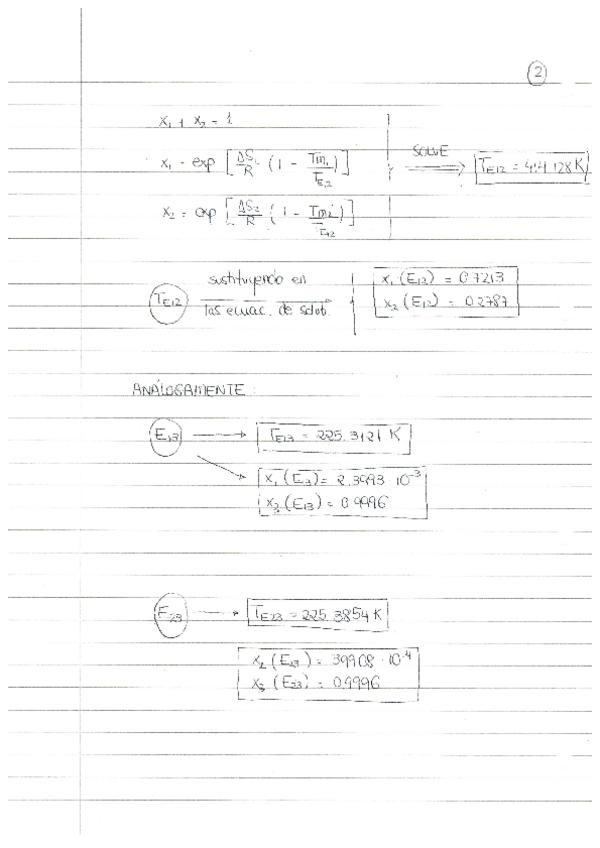 2
x₁ + x₂ = 1
x₁ = exp [ΔS₁/R (1 - Tm₁/T_E12)] SOLVE T_E12 = 441.128 K
x₂ = exp [ΔS₂/R (1 - Tm₂/T_E12)]
T_E12 sustituyendo en las ecuac. de solub. x₁ (E₁₂) = 0.7213
x₂ (E₁₂) = 0.2787
ANÁLOGAMENTE:
E₁₃ → T_E13 = 225.3121 K
x₁ (E₁₃) = 2.3993 · 10⁻³
x₃ (E₁₃) = 0.9996
E₂₃ → T_E23 = 225.3854 K
x₂ (E₂₃) = 3.9908 · 10⁻⁴
x₃ (E₂₃) = 0.9996